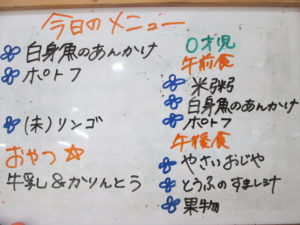 今日のメニュー
白身魚のあんかけ
ポトフ
(未)リンゴ
おやつ☆
牛乳&かりんとう
0才児
午前食
米粥
白身魚のあんかけ
ポトフ
午後食
やさいおじや
とうふのすまし汁
果物